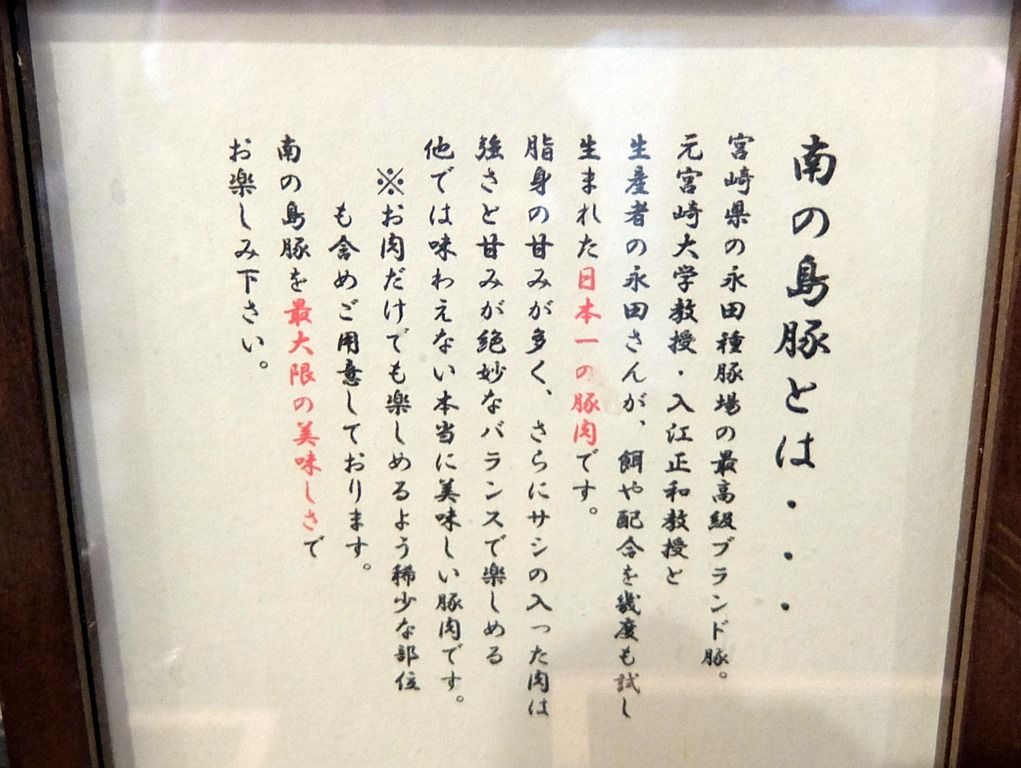 南の島豚とは・・・
宮崎県の永田種豚場の最高級ブランド豚。
元宮崎大学教授・入江正和教授と
生産者の永田さんが、餌や配合を幾度も試し
生まれた日本一の豚肉です。
脂身の甘みが多く、さらにサシの入った肉は
強さと甘みが絶妙なバランスで楽しめる
他では味わえない本当に美味しい豚肉です。
※お肉だけでも楽しめるよう稀少な部位
も含めご用意しております。
南の島豚を最大限の美味しさで
お楽しみ下さい。